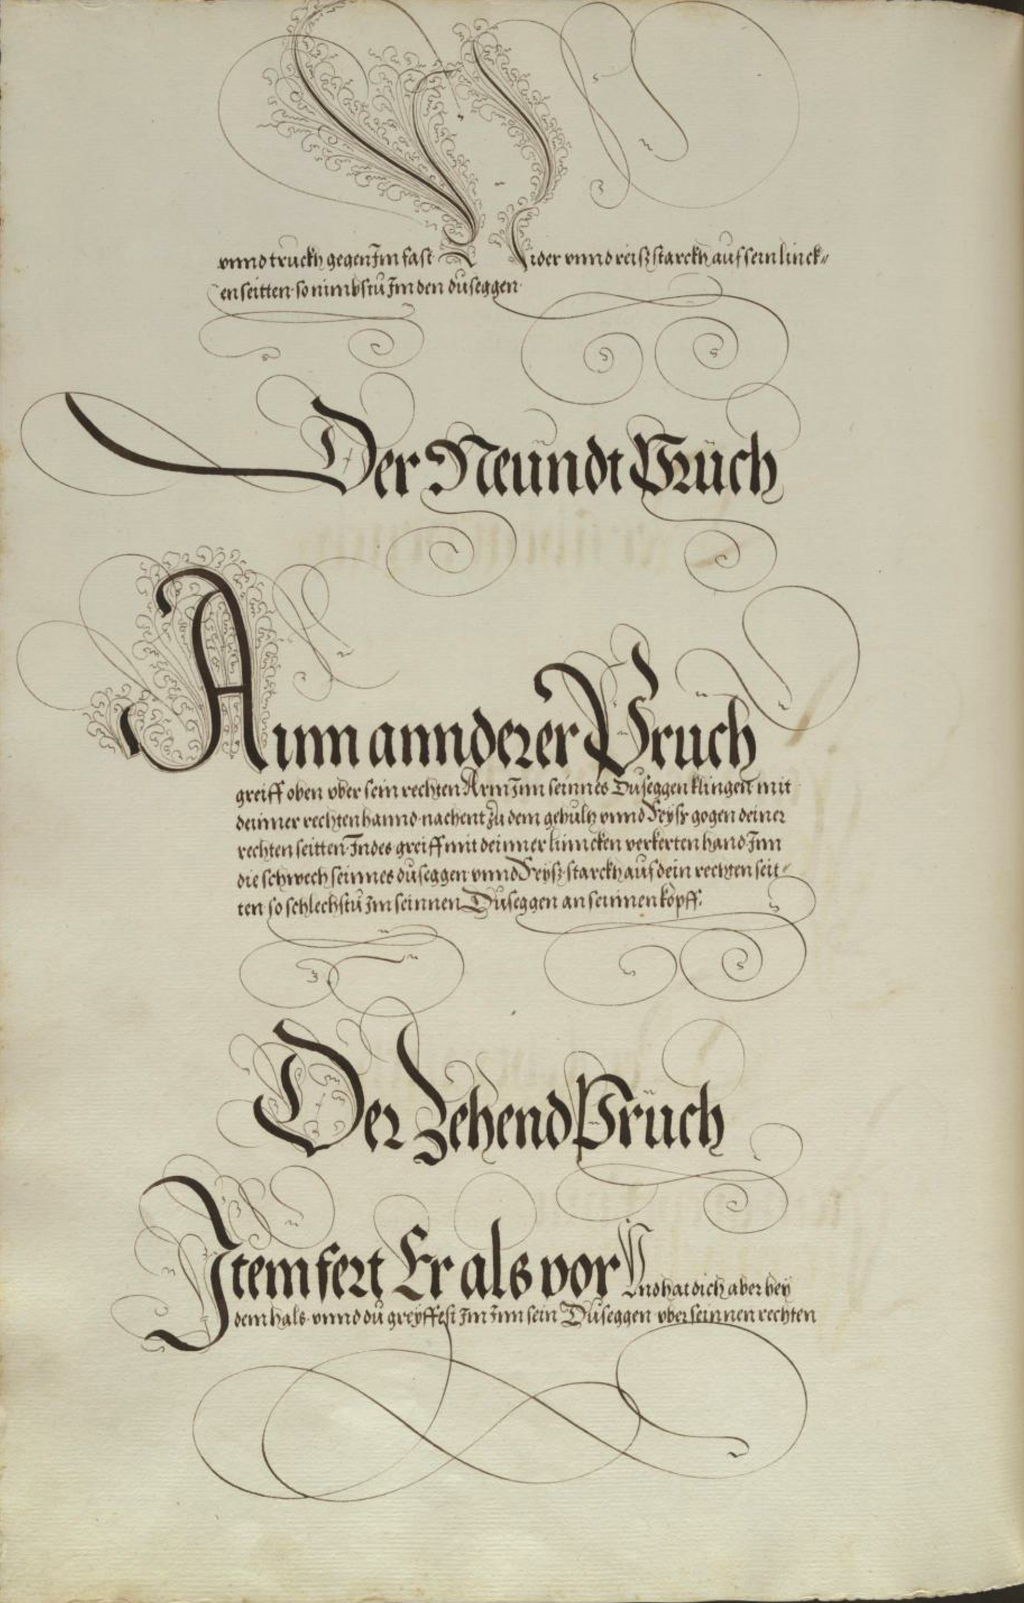 vnnd truckh gegen Im fast Nider vnnd reiß starckh auf sein linck-
en seitten so nimbstu Im den duseggen
Der Neundt Prüch
Ainn annderer Pruch
greiff oben vber sein rechten Arm Inn seinnes Duseggen klingen mit
deinner rechten hannd nachent zu dem gehultz vnnd Reyß gegen deiner
rechten seitten Indes greiff mit deinner linncken verkerten hand Inn
die schwech seinnes duseggen vnnd Reyß starckh auf dein rechten seit-
ten so schlechstu Im seinnen Duseggen an seinnen kopff.
Der Zehend Prüch
Item fert Er als vor Vnd hat dich aber bey
dem hals vnnd du greyffest Im Inn sein Duseggen vber seinnen rechten